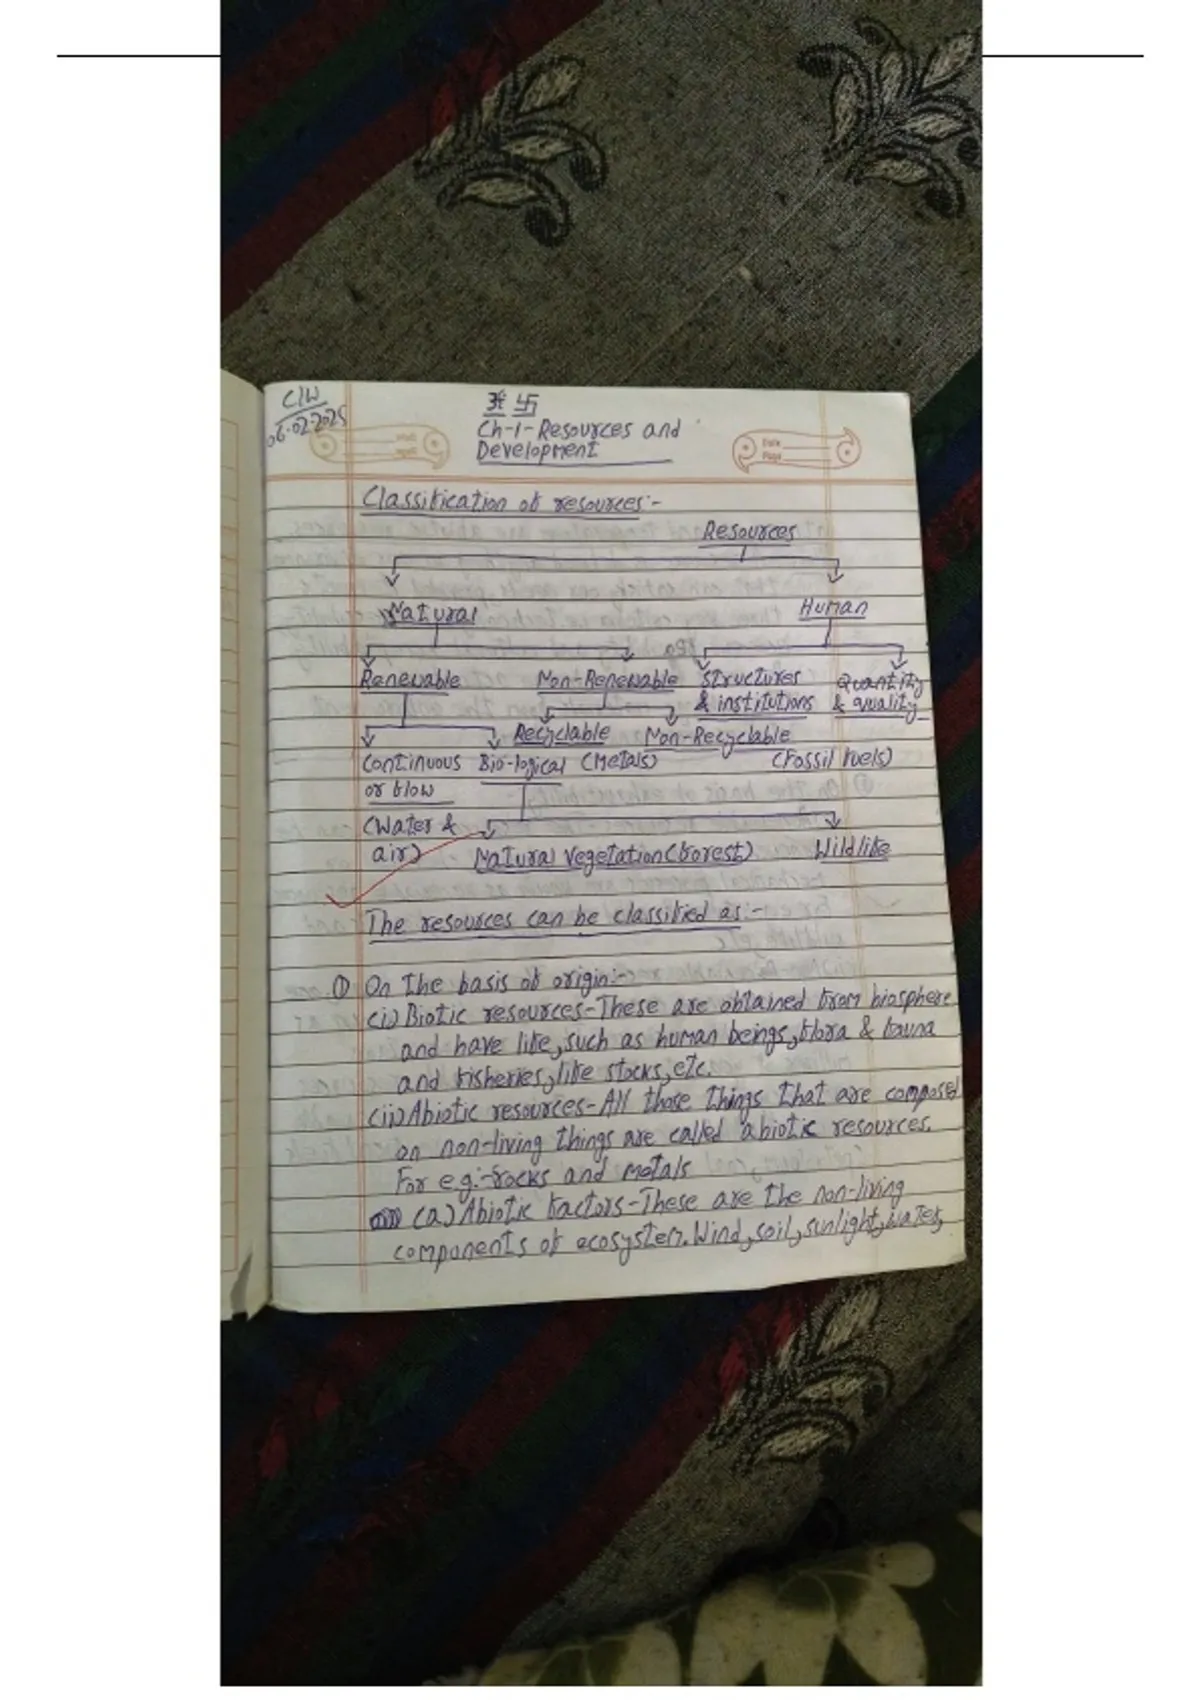 C/W
06.02.2025
ॐ 卐
Ch-1-Resources and
Development
Date
Page
Classification of resources:-
Resources
Natural Human
Renewable Non-Renewable Structures Quantity
& institutions & quality
Recyclable Non-Recyclable
Continuous Bio-logical (Metals) (Fossil fuels)
or flow
(Water &
air) Natural Vegetation(forest) Wildlife
The resources can be classified as:-
① On the basis of origin:-
(i) Biotic resources-These are obtained from biosphere
and have life, such as human beings, flora & fauna
and fisheries, life stocks, etc.
(ii) Abiotic resources-All those things that are composed
on non-living things are called abiotic resources.
For e.g:-rocks and metals
(a) Abiotic factors-These are the non-living
components of ecosystem. Wind, soil, sunlight, water,